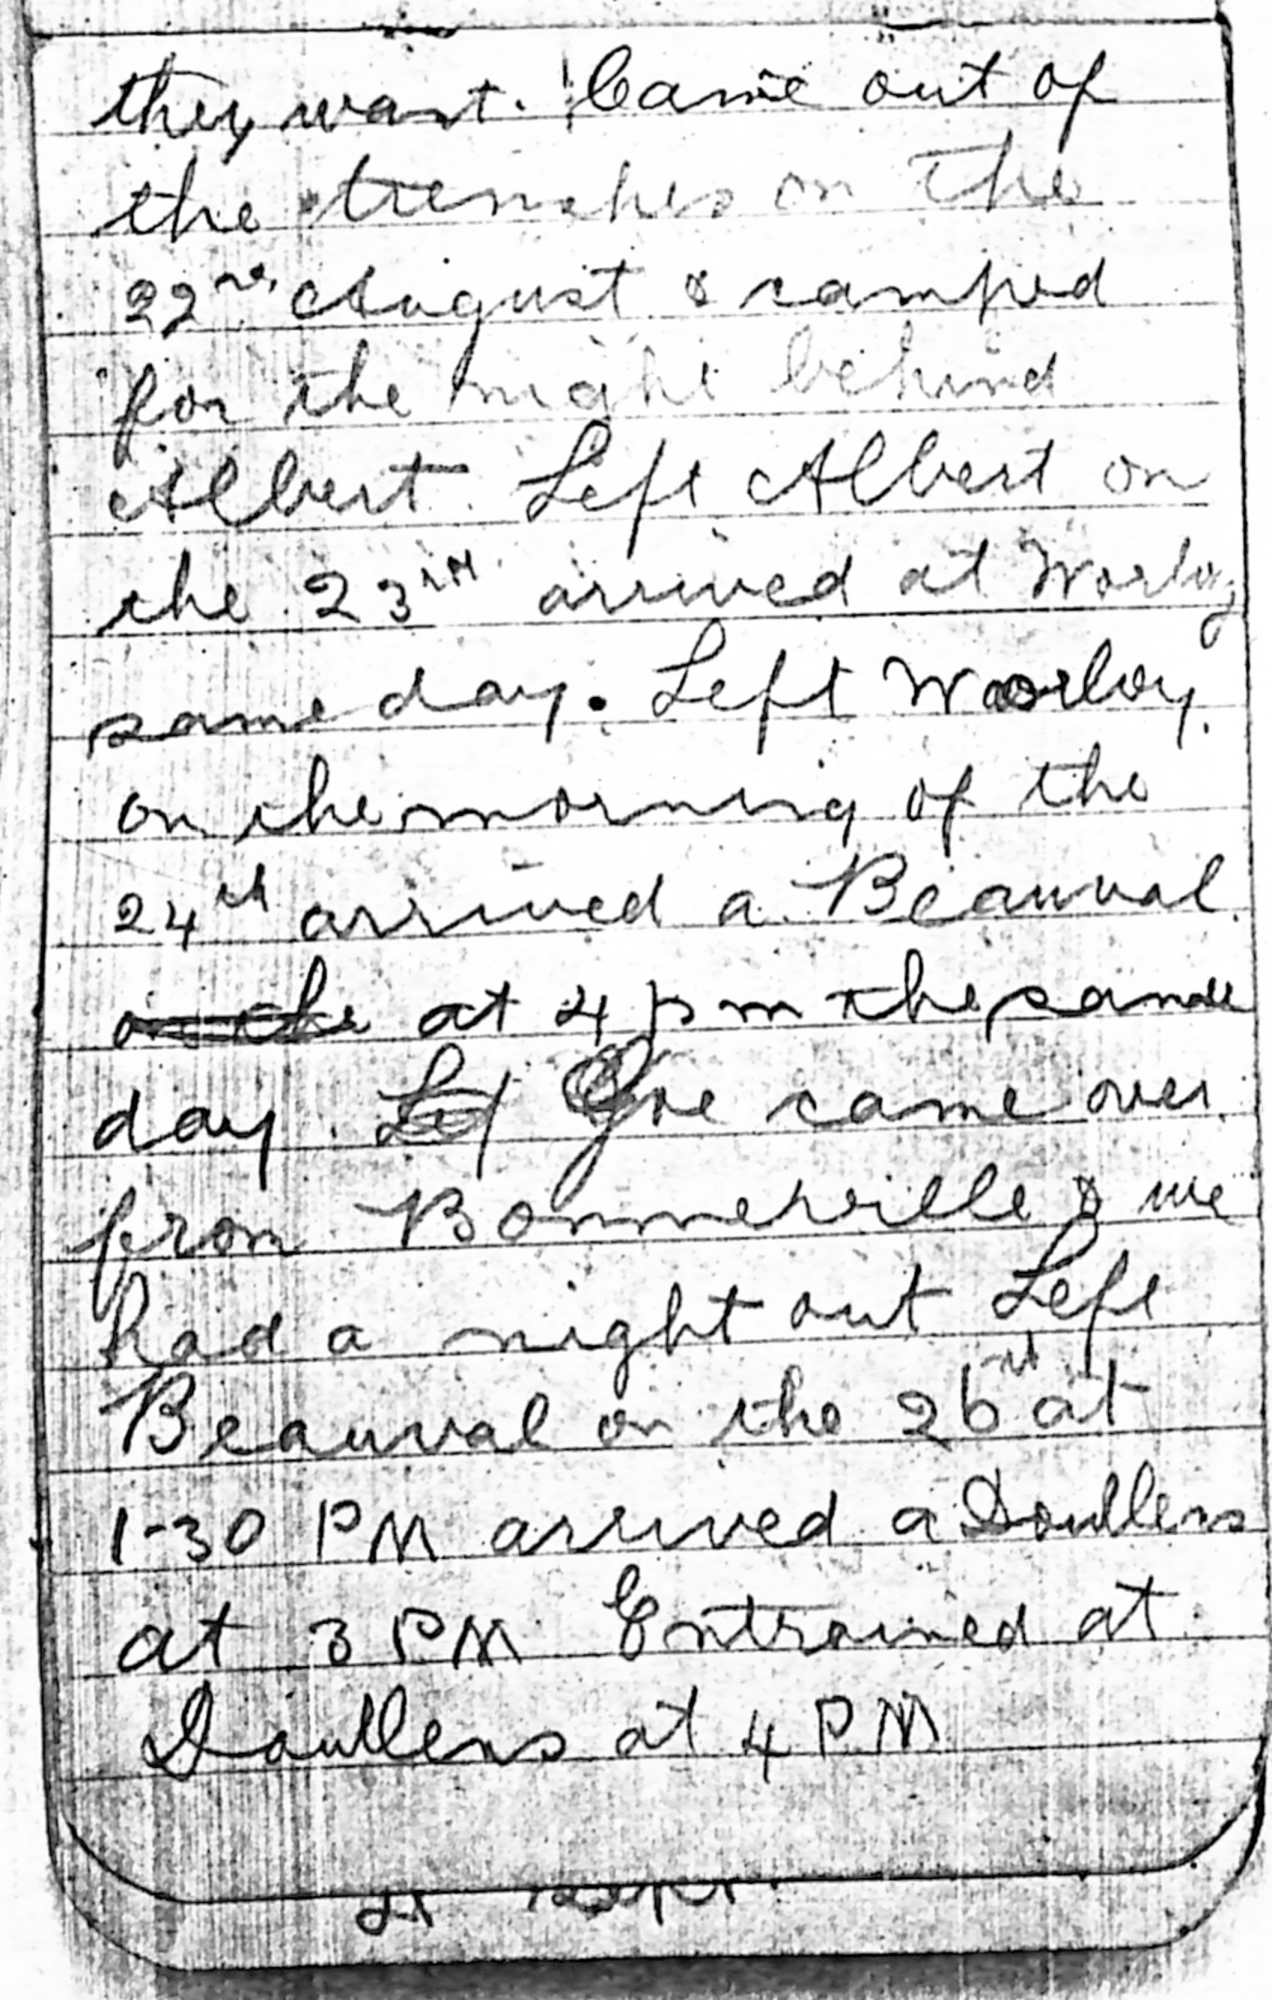 they want. Came out of
the trenches on the
22nd August & camped
for the night behind
Albert. Left Albert on
the 23th arrived at Worloy
same day. Left Worloy.
on the morning of the
24th arrived a Beauval
on the at 4 pm the same
day. Lef Joe came over
from Bonnerville & we
had a night out Left
Beauval on the 26th at
1-30 PM arrived a Doullens
at 3 PM Entrained at
Doullens at 4 PM